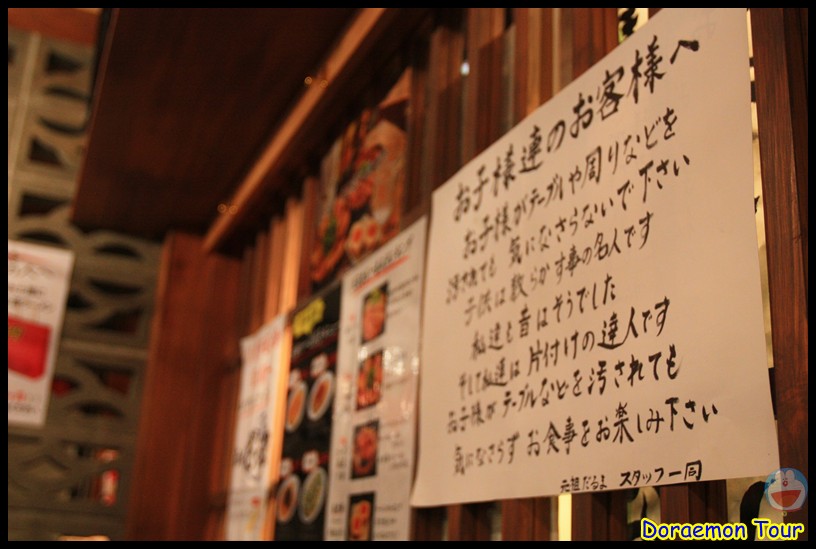 お子様達のお客様へ
お子様がテーブルや周りなどを
汚されても 気になさらないで下さい
子供は散らかす事の名人です
私達も昔はそうでした
そして私達は片付けの達人です
お子様がテーブルなどを汚されても
気になさらず お食事をお楽しみ下さい
元祖だるま スタッフ一同
Doraemon Tour